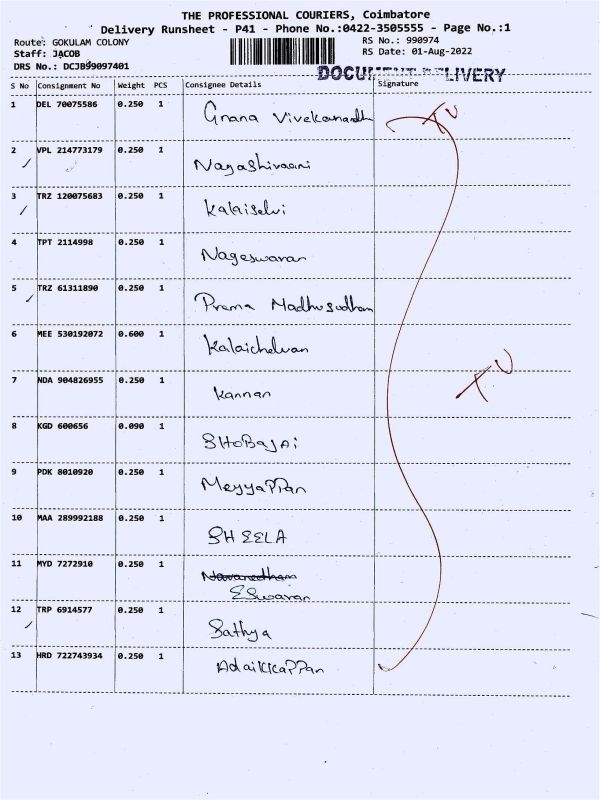 THE PROFESSIONAL COURIERS, Coimbatore
Delivery Runsheet - P41 - Phone No.:0422-3505555 - Page No.:1
Route: GOKULAM COLONY RS No.: 990974
Staff: JACOB RS Date: 01-Aug-2022
DRS No.: DCJB99097401
DOCUMENT DELIVERY
S No Consignment No Weight PCS Consignee Details Signature
1 DEL 70075586 0.250 1 Gnana Vivekanandh
2 VPL 214773179 0.250 1 Nagashivaani
3 TRZ 120075683 0.250 1 Kalaiselvi
4 TPT 2114998 0.250 1 Nageswaran
5 TRZ 61311890 0.250 1 Prema Madhusudhan
6 MEE 530192072 0.600 1 Kalaichelvan
7 NDA 904826955 0.250 1 Kannan
8 KGD 600656 0.090 1 SHOBAJAi
9 PDK 8010920 0.250 1 MeyyaPPan
10 MAA 289992188 0.250 1 SHEELA
11 MYD 7272910 0.250 1 Navaneetham
ESwaran
12 TRP 6914577 0.250 1 Sathya
13 HRD 722743934 0.250 1 AdaiKKaPPan